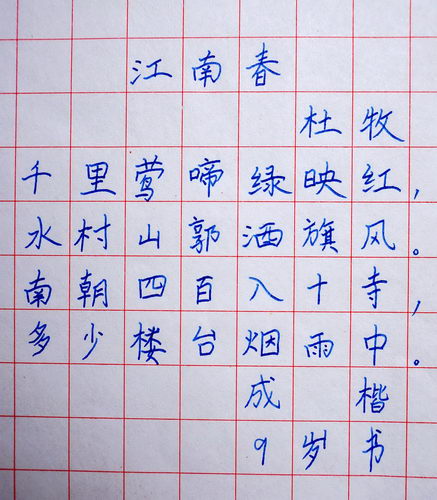 江南春
杜牧
千里莺啼绿映红，
水村山郭酒旗风。
南朝四百八十寺，
多少楼台烟雨中。
成 楷
9岁书